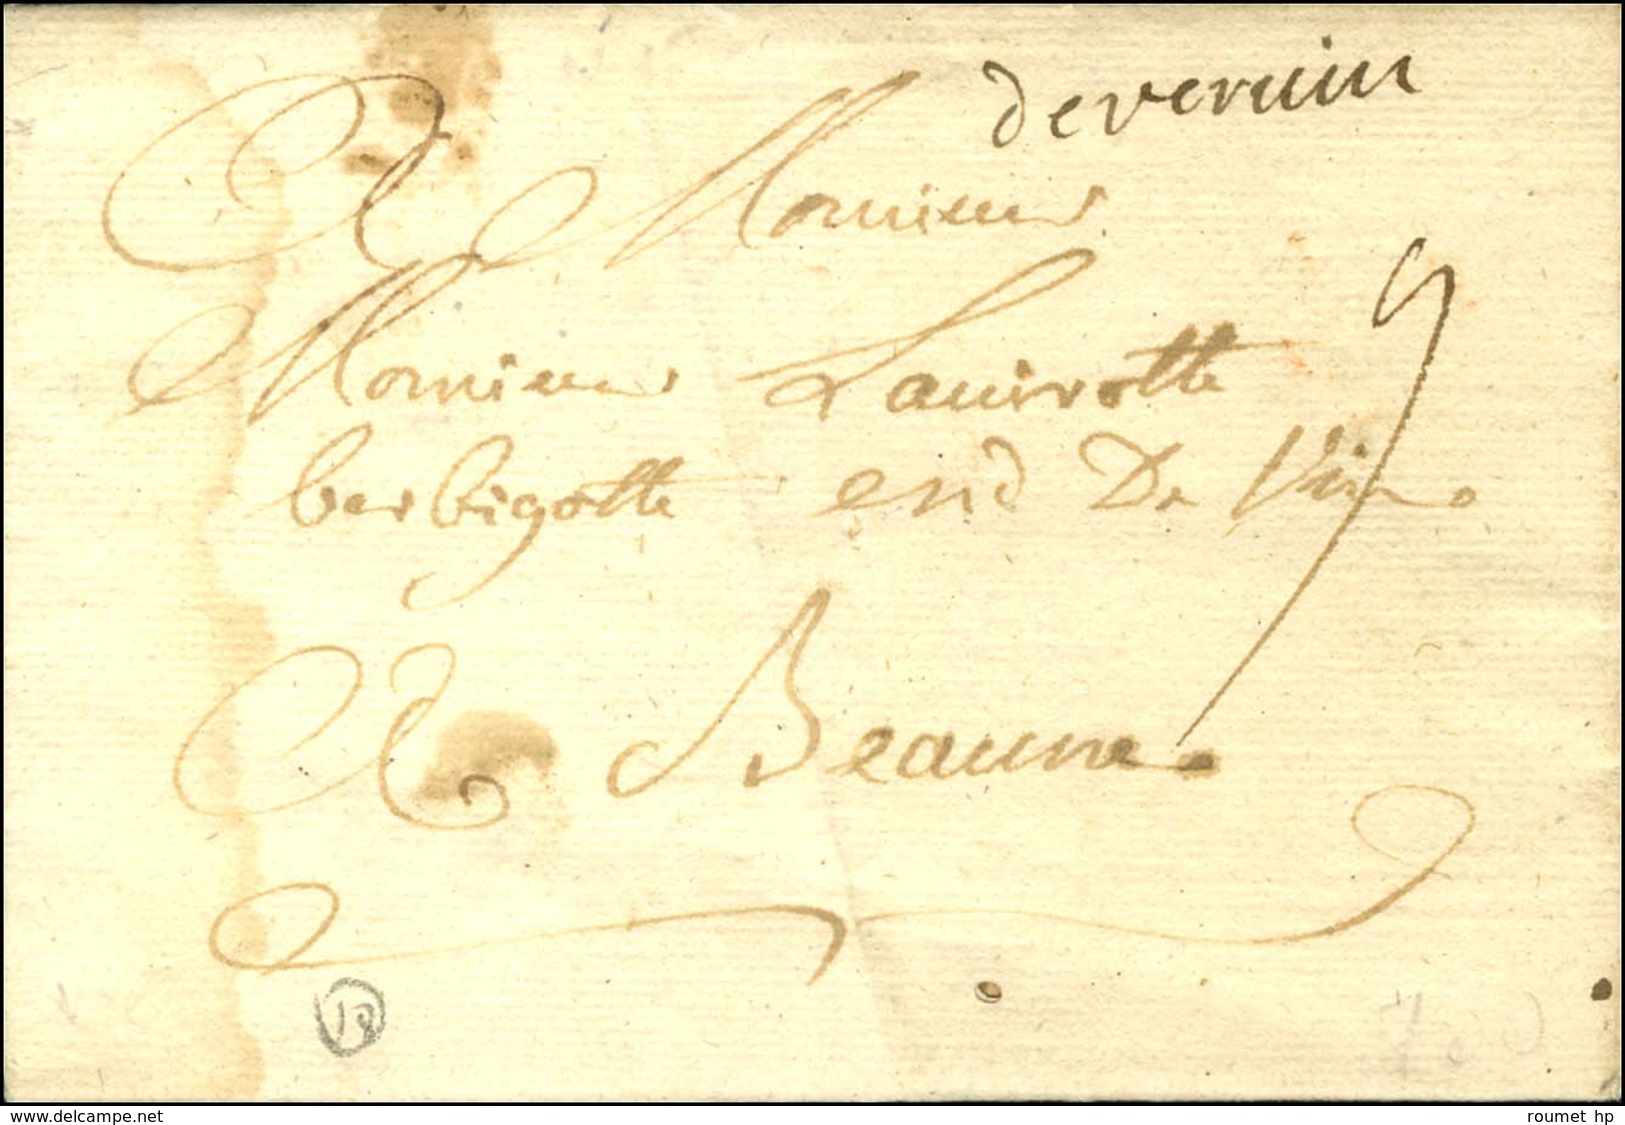 de vervin
A Monsieur
Monsieur Lavirotte
berbigotte end De Vin.
9
A Beaune.
13
www.delcampe.net
roumet hp